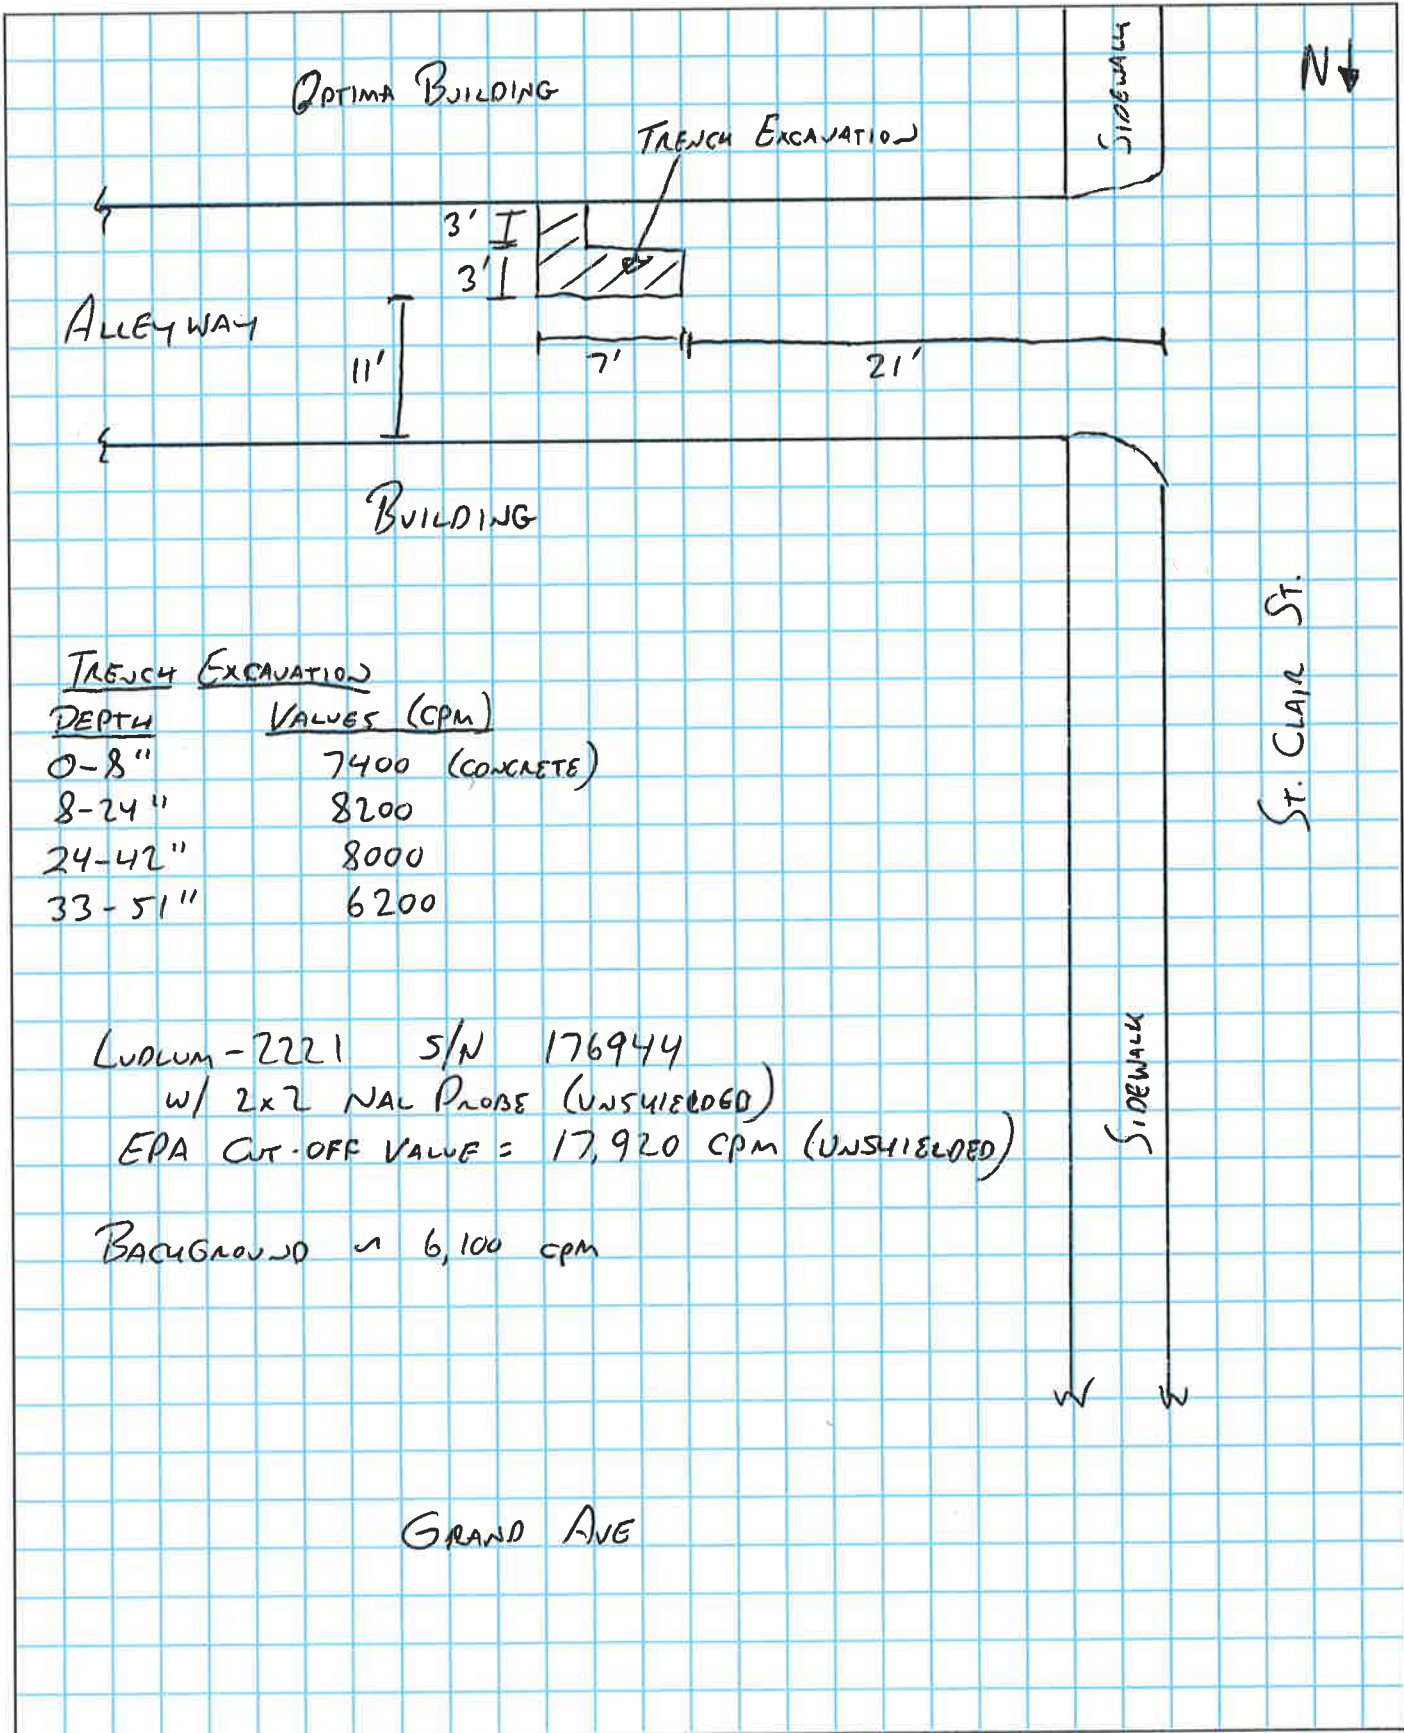 OPTIMA BUILDING
SIDEWALK
N
TRENCH EXCAVATION
3'
3'
ALLEYWAY
11'
7'
21'
BUILDING
ST. CLAIR ST.
TRENCH EXCAVATION
DEPTH VALUES (CPM)
0-8" 7400 (CONCRETE)
8-24" 8200
24-42" 8000
33-51" 6200
LUDLUM-2221 S/N 176944
W/ 2x2 NAL PROBE (UNSHIELDED)
EPA CUT-OFF VALUE = 17,920 CPM (UNSHIELDED)
SIDEWALK
BACKGROUND ~ 6,100 cpm
GRAND AVE